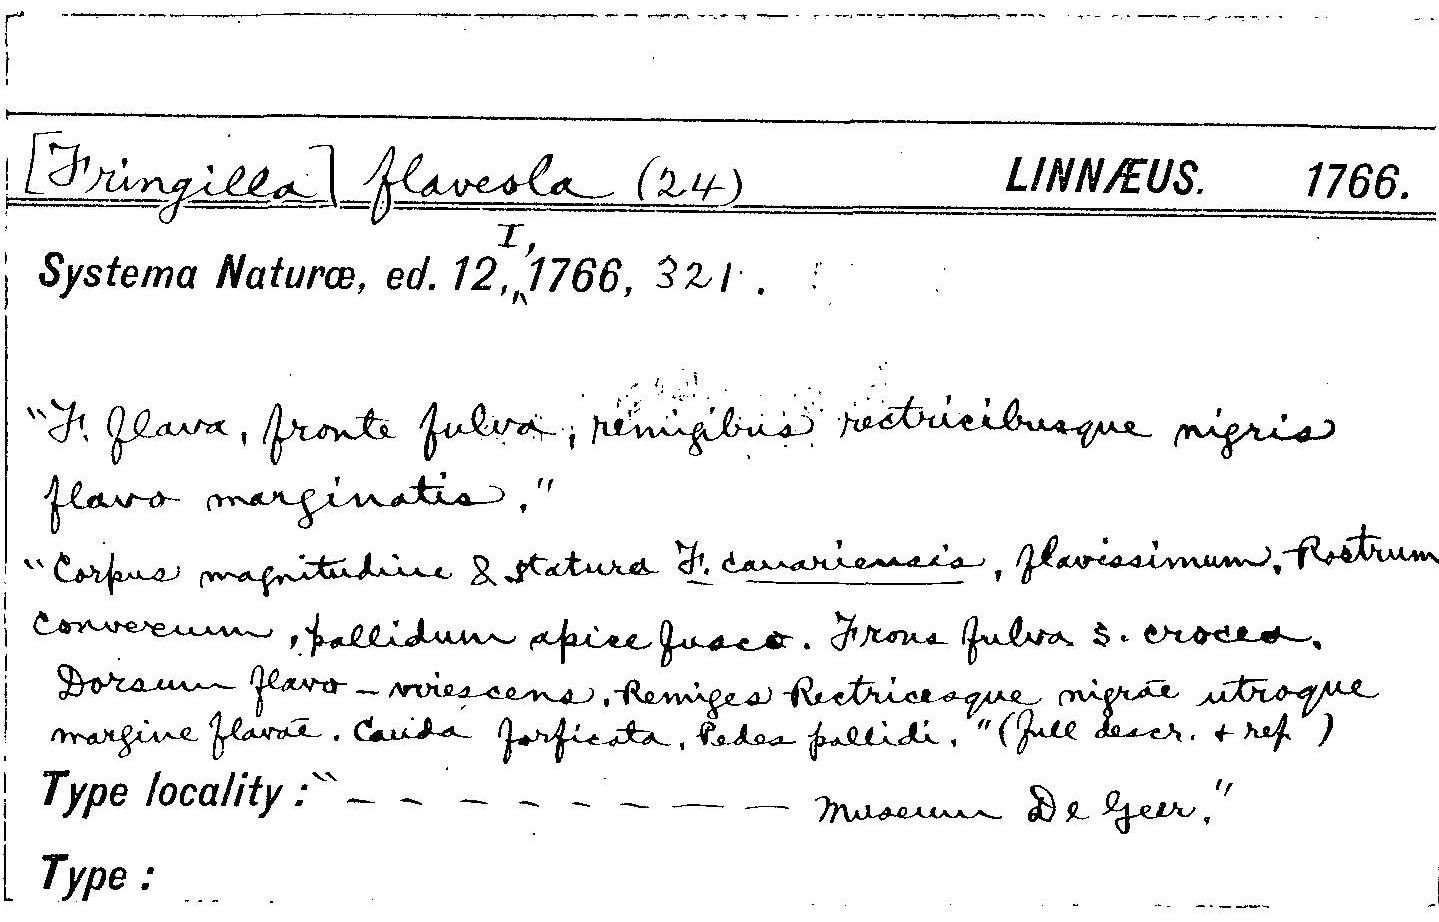 [Fringilla] flaveola (24) LINNÆUS. 1766.
I,
Systema Naturæ, ed. 12,^ 1766, 321.
"F. flava, fronte fulva, remigibus rectricibusque nigris
flavo marginatis."
"Corpus magnitudine & statura F. canariensis, flavissimum. Rostrum
convexum, pallidum apice fusco. Frons fulva s. crocea.
Dorsum flavo-virescens. Remiges Rectricesque nigræ utroque
margine flavæ. Cauda forficata. Pedes pallidi." (full descr. & ref)
Type locality: "- - - - - - - - - Museum De Geer."
Type: